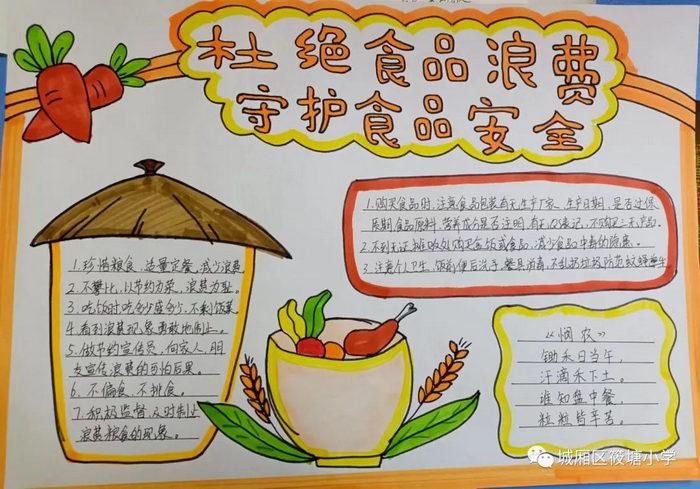 杜绝食品浪费
守护食品安全
1.珍惜粮食，适量定餐，减少浪费。
2.不攀比，以节约为荣，浪费为耻。
3.吃饭时吃多少盛多少，不剩饭菜。
4.看到浪费现象勇敢地制止。
5.做节约宣传员，向家人，朋
友宣传浪费的可怕后果。
6.不偏食，不挑食。
7.积极监督，及时制止
浪费粮食的现象。
1.购买食品时，注意食品包装有无生产厂家、生产日期，是否过保
质期，食品原料，营养成分是否注明，有无QS标记，不购买三无产品。
2.不到无证摊吸处购买盒饭或食品，减少食品中毒的隐患。
3.注意个人卫生，饭前便后洗手，餐具消毒，不乱扔垃圾防范蚊蝇
《悯农》
锄禾日当午，
汗滴禾下土。
谁知盘中餐，
粒粒皆辛苦。
城厢区筱塘小学